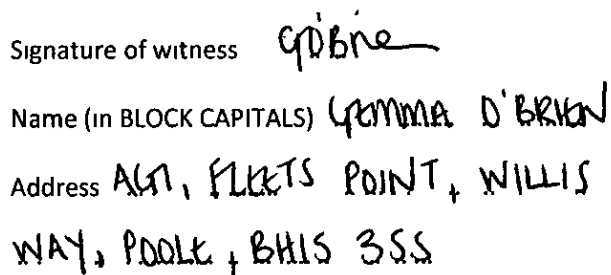 Signature of witness GO'Brie
Name (in BLOCK CAPITALS) GEMMA O'BRIEN
Address FLEETS POINT, WILLIS
WAY, POOLE, BH15 3SS